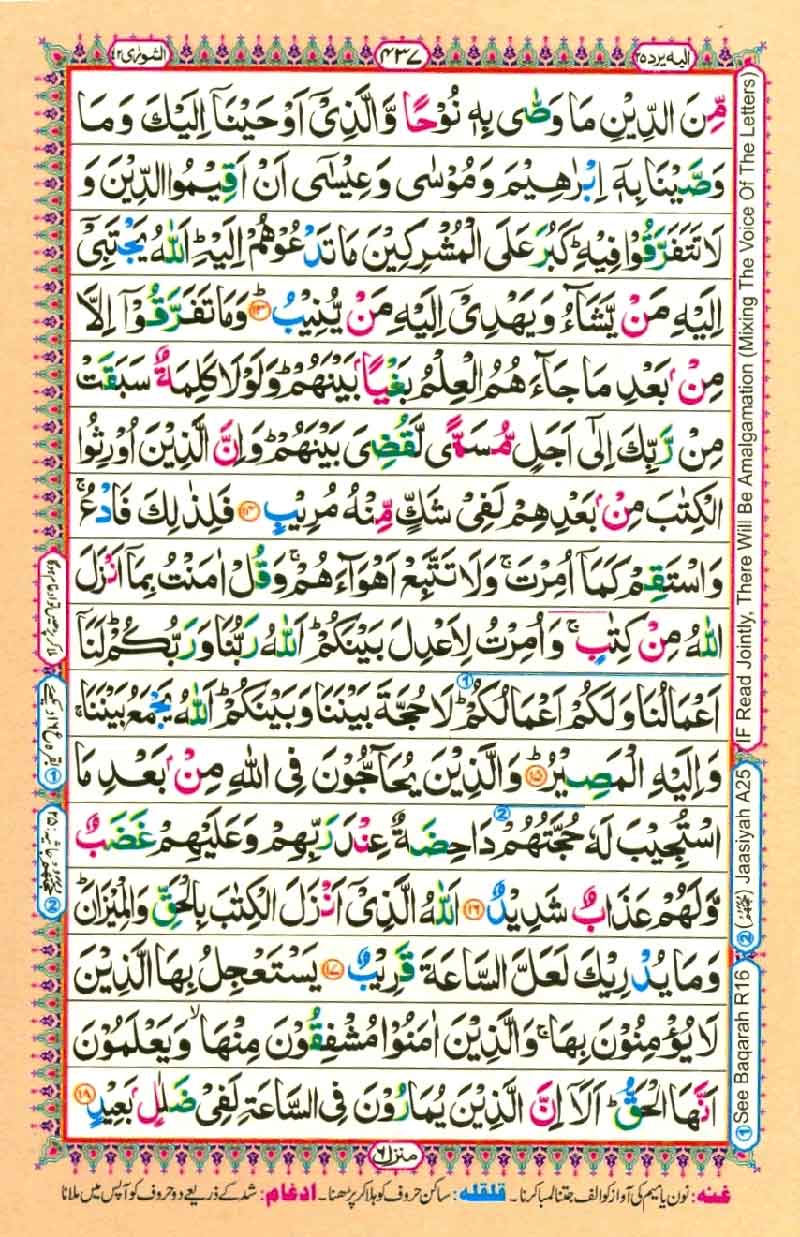 الشورٰى ٤٢
٤٣٧
اليه يرد ٢٥
مِّنَ الدِّيْنِ مَا وَصّٰى بِهٖ نُوْحًا وَّالَّذِىْٓ اَوْحَيْنَآ اِلَيْكَ وَمَا
وَصَّيْنَا بِهٖٓ اِبْرٰهِيْمَ وَمُوْسٰى وَعِيْسٰٓى اَنْ اَقِيْمُوا الدِّيْنَ وَ
لَا تَتَفَرَّقُوْا فِيْهِ ؕ كَبُرَ عَلَى الْمُشْرِكِيْنَ مَا تَدْعُوْهُمْ اِلَيْهِ ؕ اَللّٰهُ يَجْتَبِىْٓ
اِلَيْهِ مَنْ يَّشَآءُ وَيَهْدِىْٓ اِلَيْهِ مَنْ يُّنِيْبُ ؕ ١٣ وَمَا تَفَرَّقُوْٓا اِلَّا
مِنْۢ بَعْدِ مَا جَآءَهُمُ الْعِلْمُ بَغْيًۢا بَيْنَهُمْ ؕ وَلَوْلَا كَلِمَةٌ سَبَقَتْ
مِنْ رَّبِّكَ اِلٰٓى اَجَلٍ مُّسَمًّى لَّقُضِىَ بَيْنَهُمْ ؕ وَاِنَّ الَّذِيْنَ اُوْرِثُوا
الْكِتٰبَ مِنْۢ بَعْدِهِمْ لَفِىْ شَكٍّ مِّنْهُ مُرِيْبٍ ١٤ فَلِذٰلِكَ فَادْعُ ۚ
وَاسْتَقِمْ كَمَآ اُمِرْتَ ۚ وَلَا تَتَّبِعْ اَهْوَآءَهُمْ ۚ وَقُلْ اٰمَنْتُ بِمَآ اَنْزَلَ
اللّٰهُ مِنْ كِتٰبٍ ۚ وَاُمِرْتُ لِاَعْدِلَ بَيْنَكُمْ ؕ اَللّٰهُ رَبُّنَا وَرَبُّكُمْ ؕ لَنَآ
اَعْمَالُنَا وَلَكُمْ اَعْمَالُكُمْ ؕ ① لَا حُجَّةَ بَيْنَنَا وَبَيْنَكُمْ ؕ اَللّٰهُ يَجْمَعُ بَيْنَنَا ۚ
وَاِلَيْهِ الْمَصِيْرُ ؕ ١٥ وَالَّذِيْنَ يُحَآجُّوْنَ فِى اللّٰهِ مِنْۢ بَعْدِ مَا
اسْتُجِيْبَ لَهٗ حُجَّتُهُمْ ② دَاحِضَةٌ عِنْدَ رَبِّهِمْ وَعَلَيْهِمْ غَضَبٌ
وَّلَهُمْ عَذَابٌ شَدِيْدٌ ١٦ اَللّٰهُ الَّذِىْٓ اَنْزَلَ الْكِتٰبَ بِالْحَقِّ وَالْمِيْزَانَ ؕ
وَمَا يُدْرِيْكَ لَعَلَّ السَّاعَةَ قَرِيْبٌ ١٧ يَسْتَعْجِلُ بِهَا الَّذِيْنَ
لَا يُؤْمِنُوْنَ بِهَا ۚ وَالَّذِيْنَ اٰمَنُوْا مُشْفِقُوْنَ مِنْهَا ۙ وَيَعْلَمُوْنَ
اَنَّهَا الْحَقُّ ؕ اَلَآ اِنَّ الَّذِيْنَ يُمَارُوْنَ فِى السَّاعَةِ لَفِىْ ضَلٰلٍۢ بَعِيْدٍ ١٨
IF Read Jointly, There Will Be Amalgamation (Mixing The Voice Of The Letters)
② Jaasiyah A25
① See Baqarah R16
منزل ٦
غنه: نون یا میم کی آواز کو الف جتنا لمبا کرنا۔ قلقله: ساکن حروف کو ہلا کر پڑھنا۔ ادغام: شد کے ذریعے دو حروف کو آپس میں ملانا